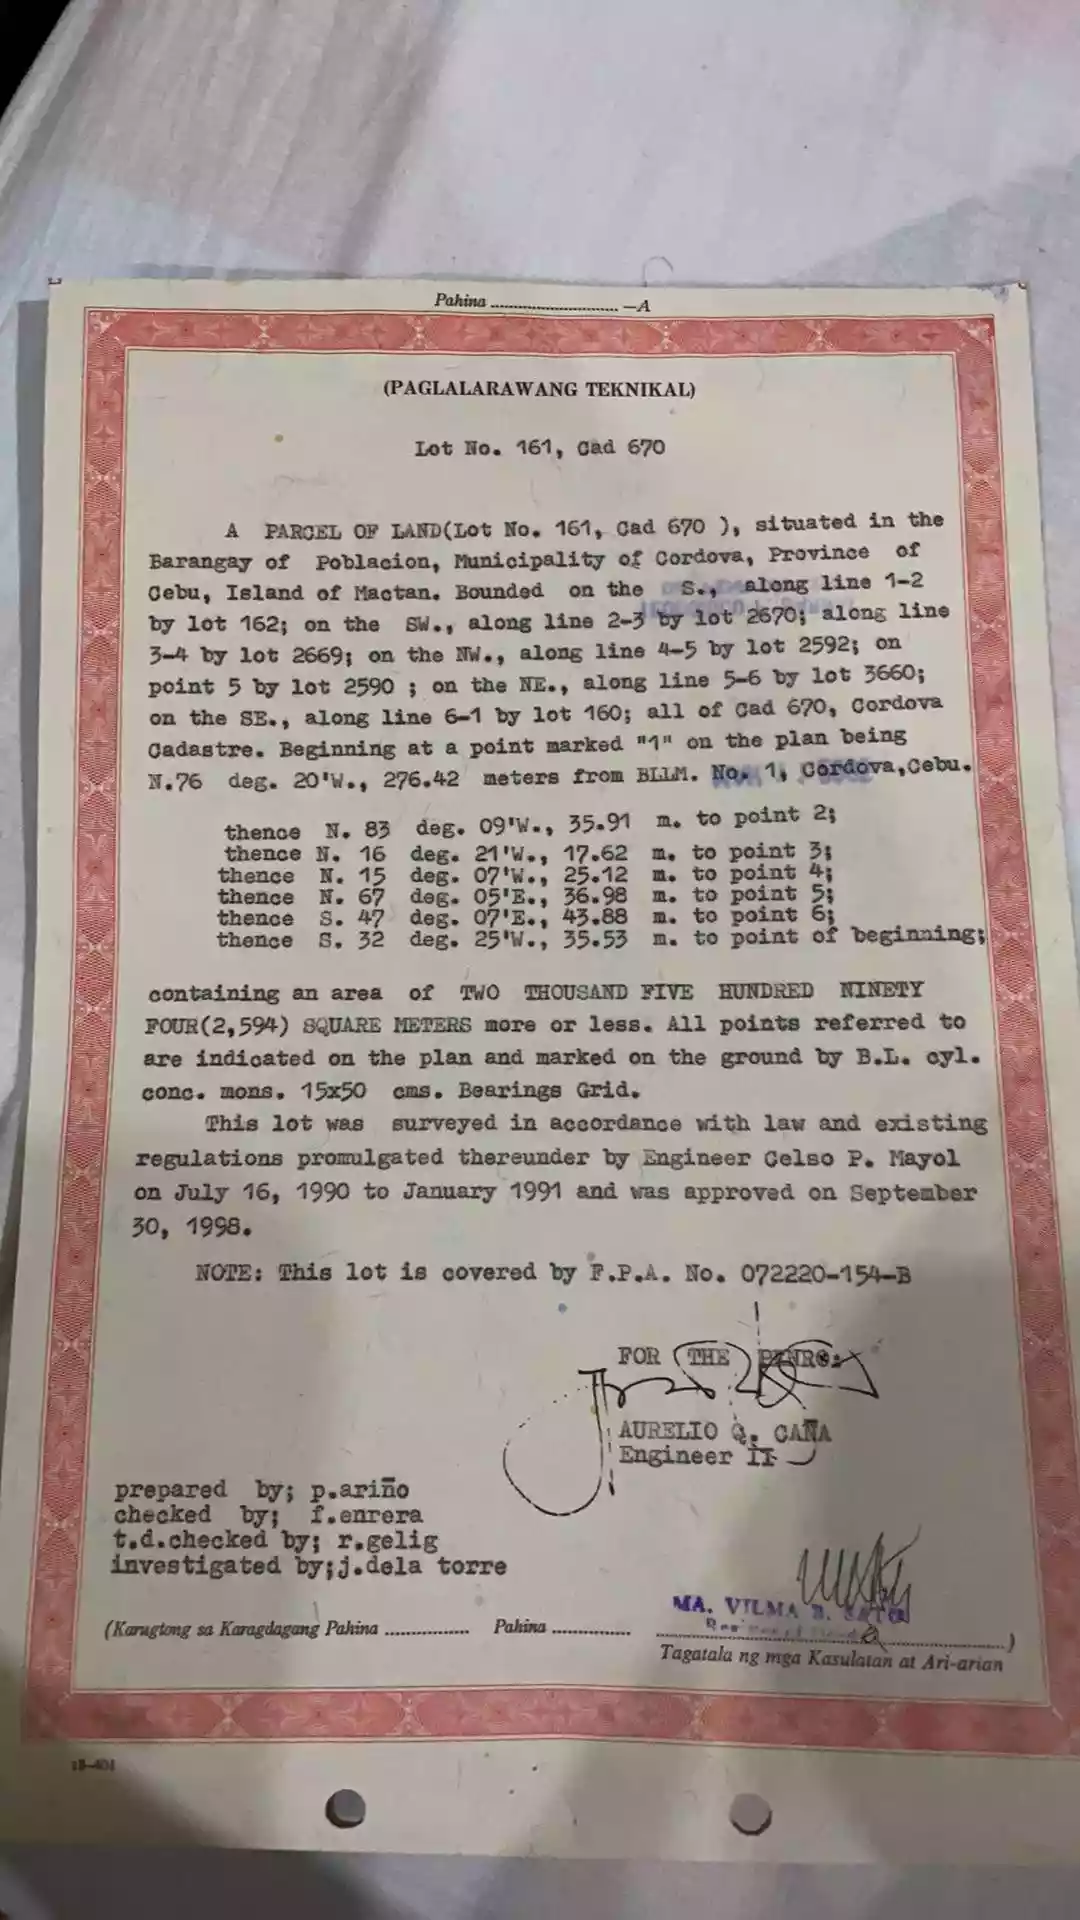 Pahina ........................... —A
(PAGLALARAWANG TEKNIKAL)
Lot No. 161, Cad 670
A PARCEL OF LAND(Lot No. 161, Cad 670 ), situated in the
Barangay of Poblacion, Municipality of Cordova, Province of
Cebu, Island of Mactan. Bounded on the S., along line 1-2
by lot 162; on the SW., along line 2-3 by lot 2670; along line
3-4 by lot 2669; on the NW., along line 4-5 by lot 2592; on
point 5 by lot 2590 ; on the NE., along line 5-6 by lot 3660;
on the SE., along line 6-1 by lot 160; all of Cad 670, Cordova
Cadastre. Beginning at a point marked "1" on the plan being
N.76 deg. 20'W., 276.42 meters from BLLM. No. 1, Cordova,Cebu.
thence N. 83 deg. 09'W., 35.91 m. to point 2;
thence N. 16 deg. 21'W., 17.62 m. to point 3;
thence N. 15 deg. 07'W., 25.12 m. to point 4;
thence N. 67 deg. 05'E., 36.98 m. to point 5;
thence S. 47 deg. 07'E., 43.88 m. to point 6;
thence S. 32 deg. 25'W., 35.53 m. to point of beginning;
containing an area of TWO THOUSAND FIVE HUNDRED NINETY
FOUR(2,594) SQUARE METERS more or less. All points referred to
are indicated on the plan and marked on the ground by B.L. cyl.
conc. mons. 15x50 cms. Bearings Grid.
This lot was surveyed in accordance with law and existing
regulations promulgated thereunder by Engineer Celso P. Mayol
on July 16, 1990 to January 1991 and was approved on September
30, 1998.
NOTE: This lot is covered by F.P.A. No. 072220-154-B
FOR THE PENRO:
AURELIO Q. CAÑA
Engineer II
prepared by; p.ariño
checked by; f.enrera
t.d.checked by; r.gelig
investigated by;j.dela torre
MA. VILMA B.
(Karugtong sa Karagdagang Pahina ................ Pahina ............... )
Tagatala ng mga Kasulatan at Ari-arian